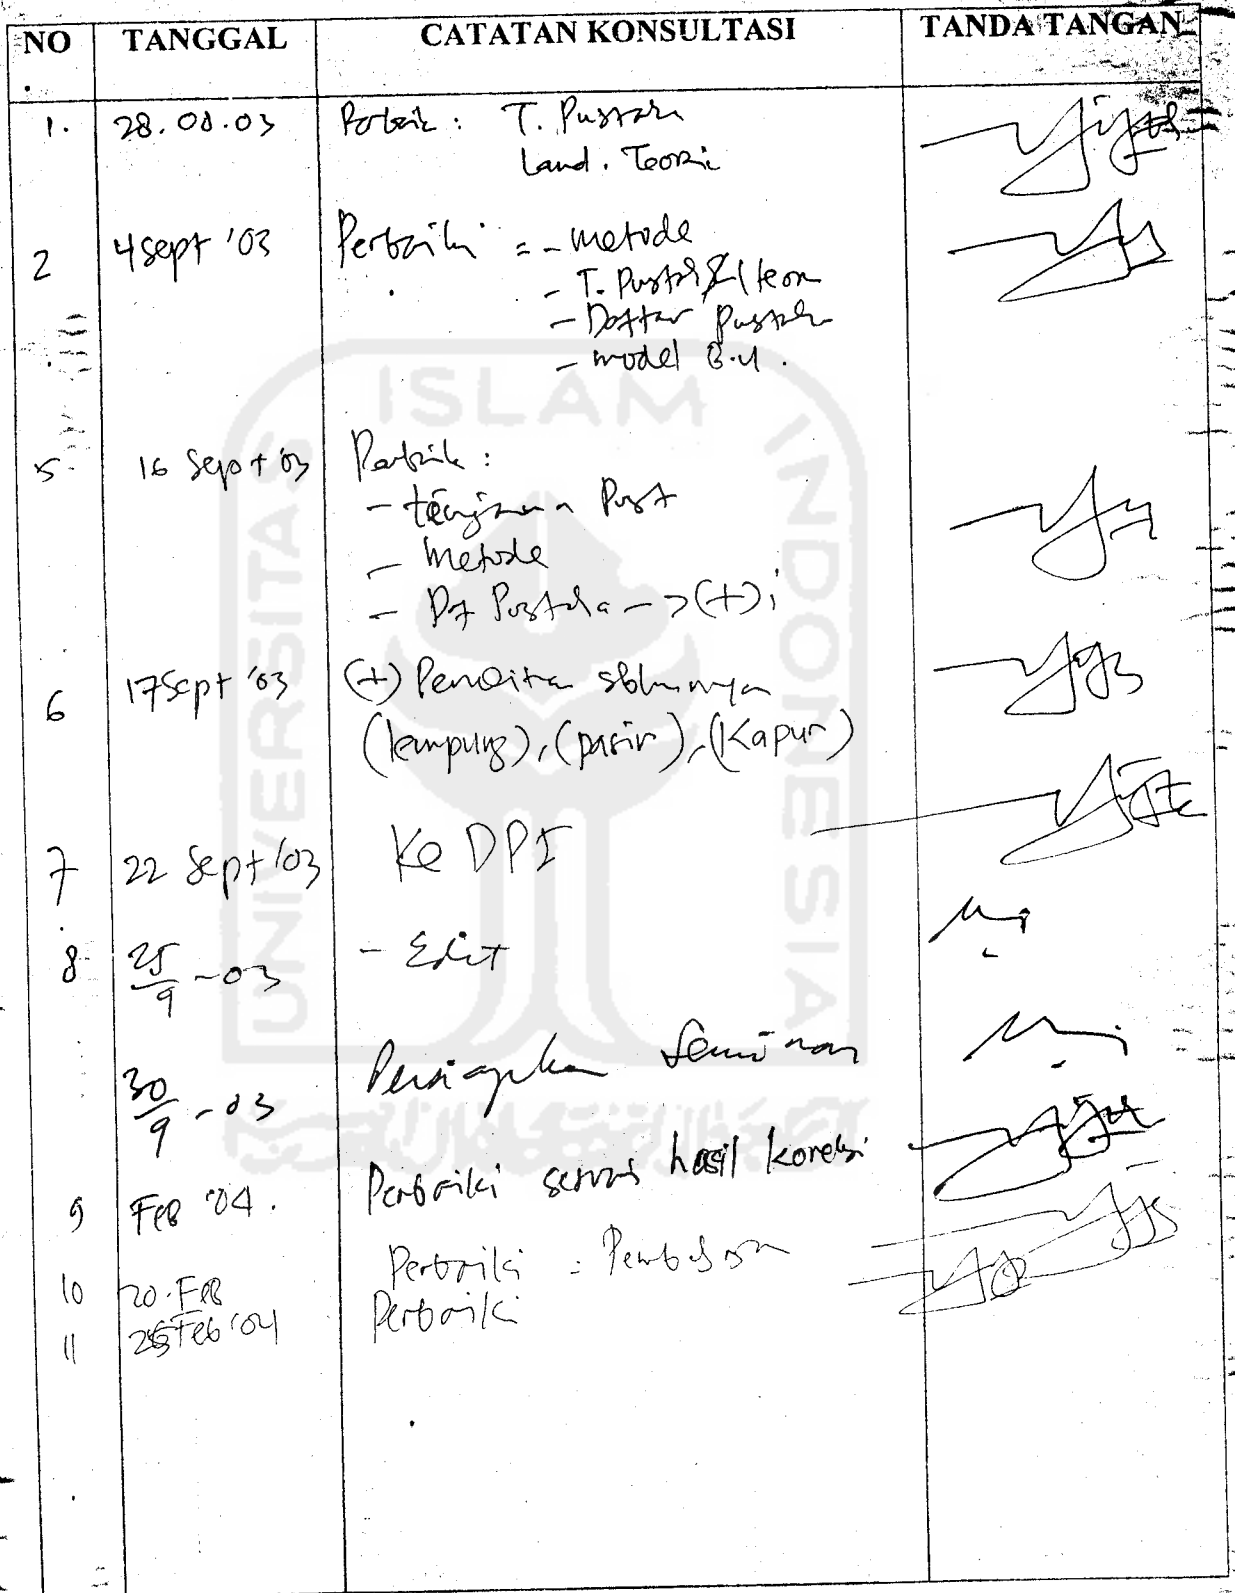 NO TANGGAL CATATAN KONSULTASI TANDA TANGAN
1. 28.08.03 Perbaiki : T. Pustaka
Land. Teori
2 4 Sept '03 Perbaiki : - metode
- T. Pustaka & L teori
- Daftar pustaka
- model B.U.
5 16 Sept '03 Perbaiki :
- tinjauan Pust
- Metode
- Df Pustaka -> (+)i
6 17 Sept '03 (+) Penelitian sblumnya
(lempung), (pasir), (Kapur)
7 22 Sept '03 Ke DPI
8 25/9 - 03 - Edit
30/9 - 03 Persiapkan Seminar
9 Feb '04. Perbaiki sesuai hasil koreksi
10 20 Feb Perbaiki : Pembahasan
11 Feb '04 Perbaiki
UNIVERSITAS ISLAM INDONESIA